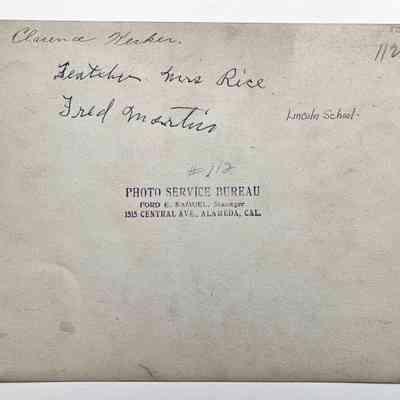 Clarence
112
Teatcher Mrs Rice
Fred Martin
Lincoln School.
#112
PHOTO SERVICE BUREAU
FORD E. SAMUEL, Manager
1515 CENTRAL AVE., ALAMEDA, CAL.